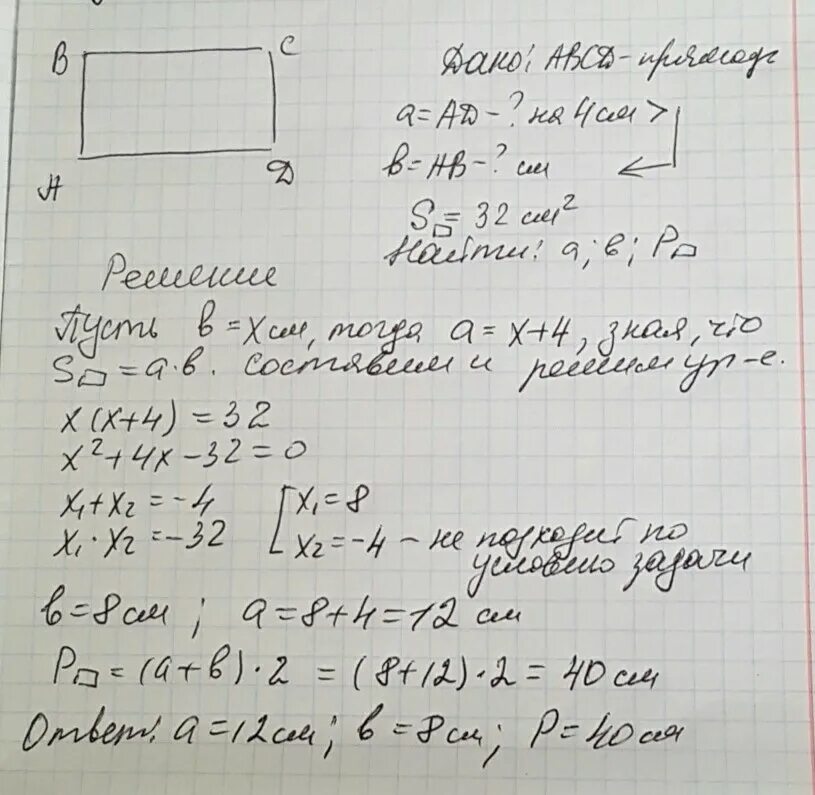 В С
А Д
Дано: АВСД - прямоуг
a = АД - ? на 4 см >
в = АВ - ? см
S▭ = 32 см²
Найти: а; в; Р▭
Решение
Пусть в = x см, тогда а = x+4, зная, что
S▭ = а·в. составим и решим ур-е.
x(x+4) = 32
x²+4x-32=0
x₁+x₂ = -4
x₁·x₂ = -32
x₁=8
x₂=-4 - не подходит по
условию задачи
в=8 см; а=8+4=12 см
Р▭ = (а+в)·2 = (8+12)·2 = 40 см
Ответ: а=12см; в=8см; Р=40см